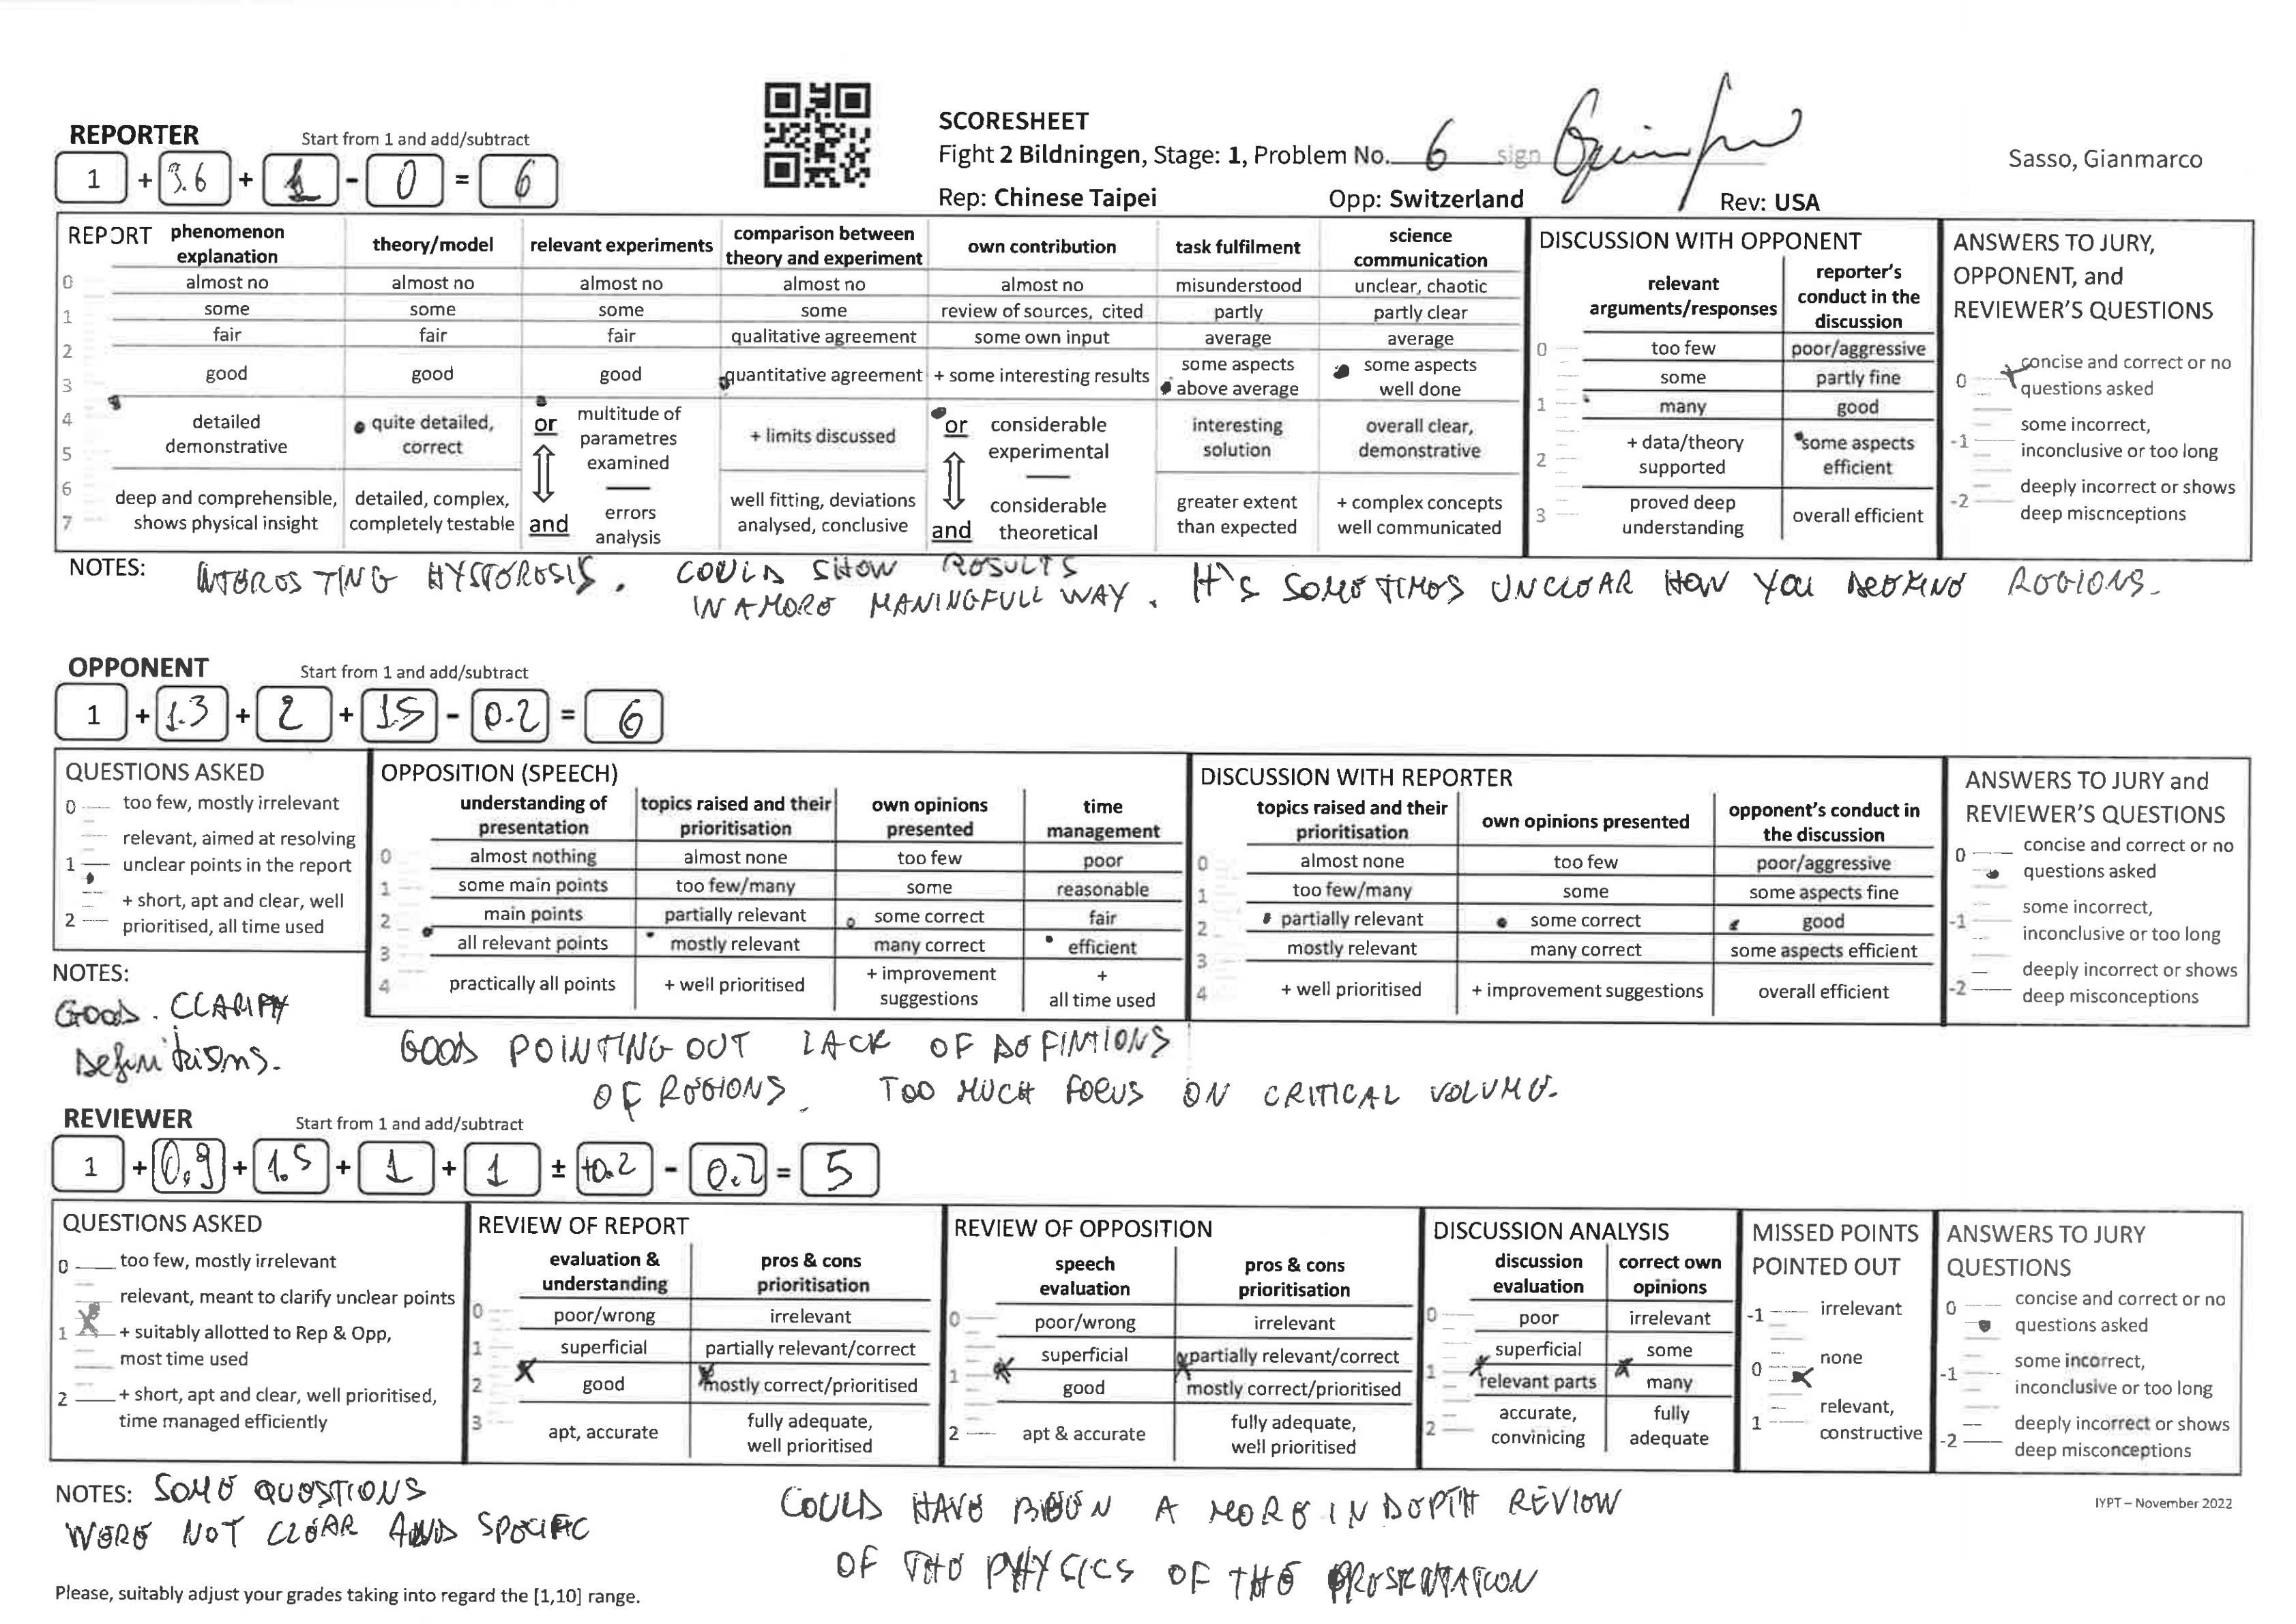 REPORTER
Start from 1 and add/subtract
1 + 3.6 + 1 - 0 = 6
SCORESHEET
Fight 2 Bildningen, Stage: 1, Problem No. 6 sign
Rep: Chinese Taipei Opp: Switzerland Rev: USA
Sasso, Gianmarco
REPORT
phenomenon explanation
theory/model
relevant experiments
comparison between theory and experiment
own contribution
task fulfilment
science communication
0 almost no almost no almost no almost no almost no misunderstood unclear, chaotic
1 some some some some review of sources, cited partly partly clear
2 fair fair fair qualitative agreement some own input average average
3 good good good quantitative agreement + some interesting results some aspects above average some aspects well done
4 detailed demonstrative quite detailed, correct or multitude of parametres examined + limits discussed or considerable experimental interesting solution overall clear, demonstrative
5
6 deep and comprehensible, shows physical insight detailed, complex, completely testable and errors analysis well fitting, deviations analysed, conclusive and considerable theoretical greater extent than expected + complex concepts well communicated
7
DISCUSSION WITH OPPONENT
relevant arguments/responses
reporter's conduct in the discussion
0 too few poor/aggressive
some partly fine
1 many good
2 + data/theory supported some aspects efficient
3 proved deep understanding overall efficient
ANSWERS TO JURY, OPPONENT, and REVIEWER'S QUESTIONS
0 concise and correct or no questions asked
-1 some incorrect, inconclusive or too long
-2 deeply incorrect or shows deep miscnceptions
NOTES: INTERESTING HYSTERESIS. COULD SHOW RESULTS
IN A MORE MANINGFULL WAY. It's SOMETIMES UNCLEAR HOW YOU DEFINE REGIONS.
OPPONENT
Start from 1 and add/subtract
1 + 1.3 + 2 + 1.5 - 0.2 = 6
QUESTIONS ASKED
0 too few, mostly irrelevant
relevant, aimed at resolving
1 unclear points in the report
+ short, apt and clear, well
2 prioritised, all time used
OPPOSITION (SPEECH)
understanding of presentation
topics raised and their prioritisation
own opinions presented
time management
0 almost nothing almost none too few poor
1 some main points too few/many some reasonable
2 main points partially relevant some correct fair
3 all relevant points mostly relevant many correct efficient
4 practically all points + well prioritised + improvement suggestions + all time used
DISCUSSION WITH REPORTER
topics raised and their prioritisation
own opinions presented
opponent's conduct in the discussion
0 almost none too few poor/aggressive
1 too few/many some some aspects fine
2 partially relevant some correct good
3 mostly relevant many correct some aspects efficient
4 + well prioritised + improvement suggestions overall efficient
ANSWERS TO JURY and REVIEWER'S QUESTIONS
0 concise and correct or no questions asked
-1 some incorrect, inconclusive or too long
-2 deeply incorrect or shows deep misconceptions
NOTES:
GOOD. CLARIFY
Definitions.
GOOD POINTING OUT LACK OF DEFINTIONS
OF REGIONS. TOO MUCH FOCUS ON CRITICAL VOLUME.
REVIEWER
Start from 1 and add/subtract
1 + 0.9 + 1.5 + 1 + 1 ± +0.2 - 0.2 = 5
QUESTIONS ASKED
0 too few, mostly irrelevant
relevant, meant to clarify unclear points
1 + suitably allotted to Rep & Opp,
most time used
2 + short, apt and clear, well prioritised,
time managed efficiently
REVIEW OF REPORT
evaluation & understanding
pros & cons prioritisation
0 poor/wrong irrelevant
1 superficial partially relevant/correct
2 good mostly correct/prioritised
3 apt, accurate fully adequate, well prioritised
REVIEW OF OPPOSITION
speech evaluation
pros & cons prioritisation
0 poor/wrong irrelevant
superficial partially relevant/correct
1 good mostly correct/prioritised
2 apt & accurate fully adequate, well prioritised
DISCUSSION ANALYSIS
discussion evaluation
correct own opinions
0 poor irrelevant
superficial some
1 relevant parts many
2 accurate, convinicing fully adequate
MISSED POINTS POINTED OUT
-1 irrelevant
0 none
1 relevant, constructive
ANSWERS TO JURY QUESTIONS
0 concise and correct or no questions asked
-1 some incorrect, inconclusive or too long
-2 deeply incorrect or shows deep misconceptions
NOTES: SOME QUESTIONS
WERE NOT CLEAR AND SPECIFIC
COULD HAVE BEEN A MORE IN DEPTH REVIEW
OF THE PHYSICS OF THE PRESENTATION
IYPT – November 2022
Please, suitably adjust your grades taking into regard the [1,10] range.